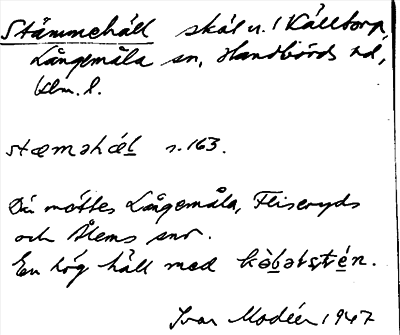 Stämmehäll skäl n. i Källtorp,
Långemåla sn, Handbörds hd,
Klm. l.
stæmǝhæl s. 163.
Där möttes Långemåla, Fliseryds
och Ålems snr.
En hög häll med
Ivar Modéer 1947